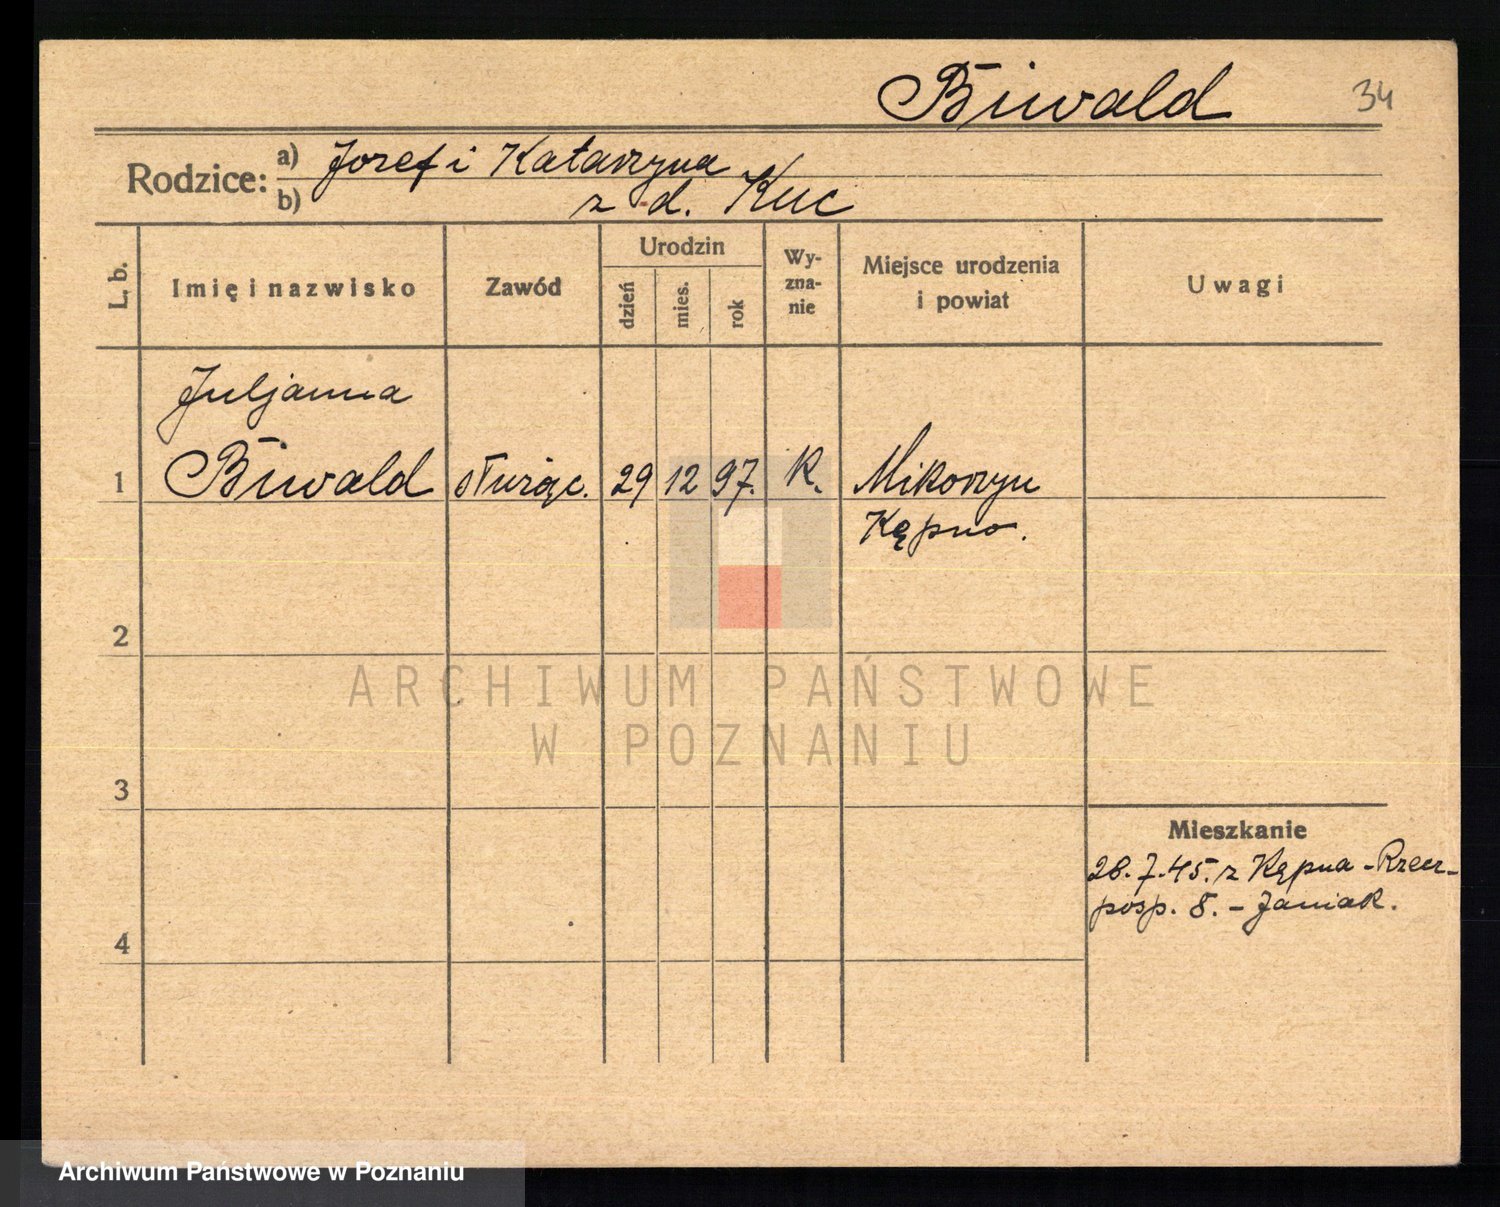 Biwald 34
Rodzice: a) Jozef i Katarzyna
b) z d. Kuc
L. b. Imię i nazwisko Zawód Urodzin dzień mies. rok Wy-zna-nie Miejsce urodzenia i powiat Uwagi
Juljanna
1 Biwald służąc. 29 12 97. K. Mikorzyn
Kępno.
2
ARCHIWUM PAŃSTWOWE
W POZNANIU
3
Mieszkanie
28.7.45. z Kępna - Rzecz-
posp. 8. - Janiak.
4
Archiwum Państwowe w Poznaniu